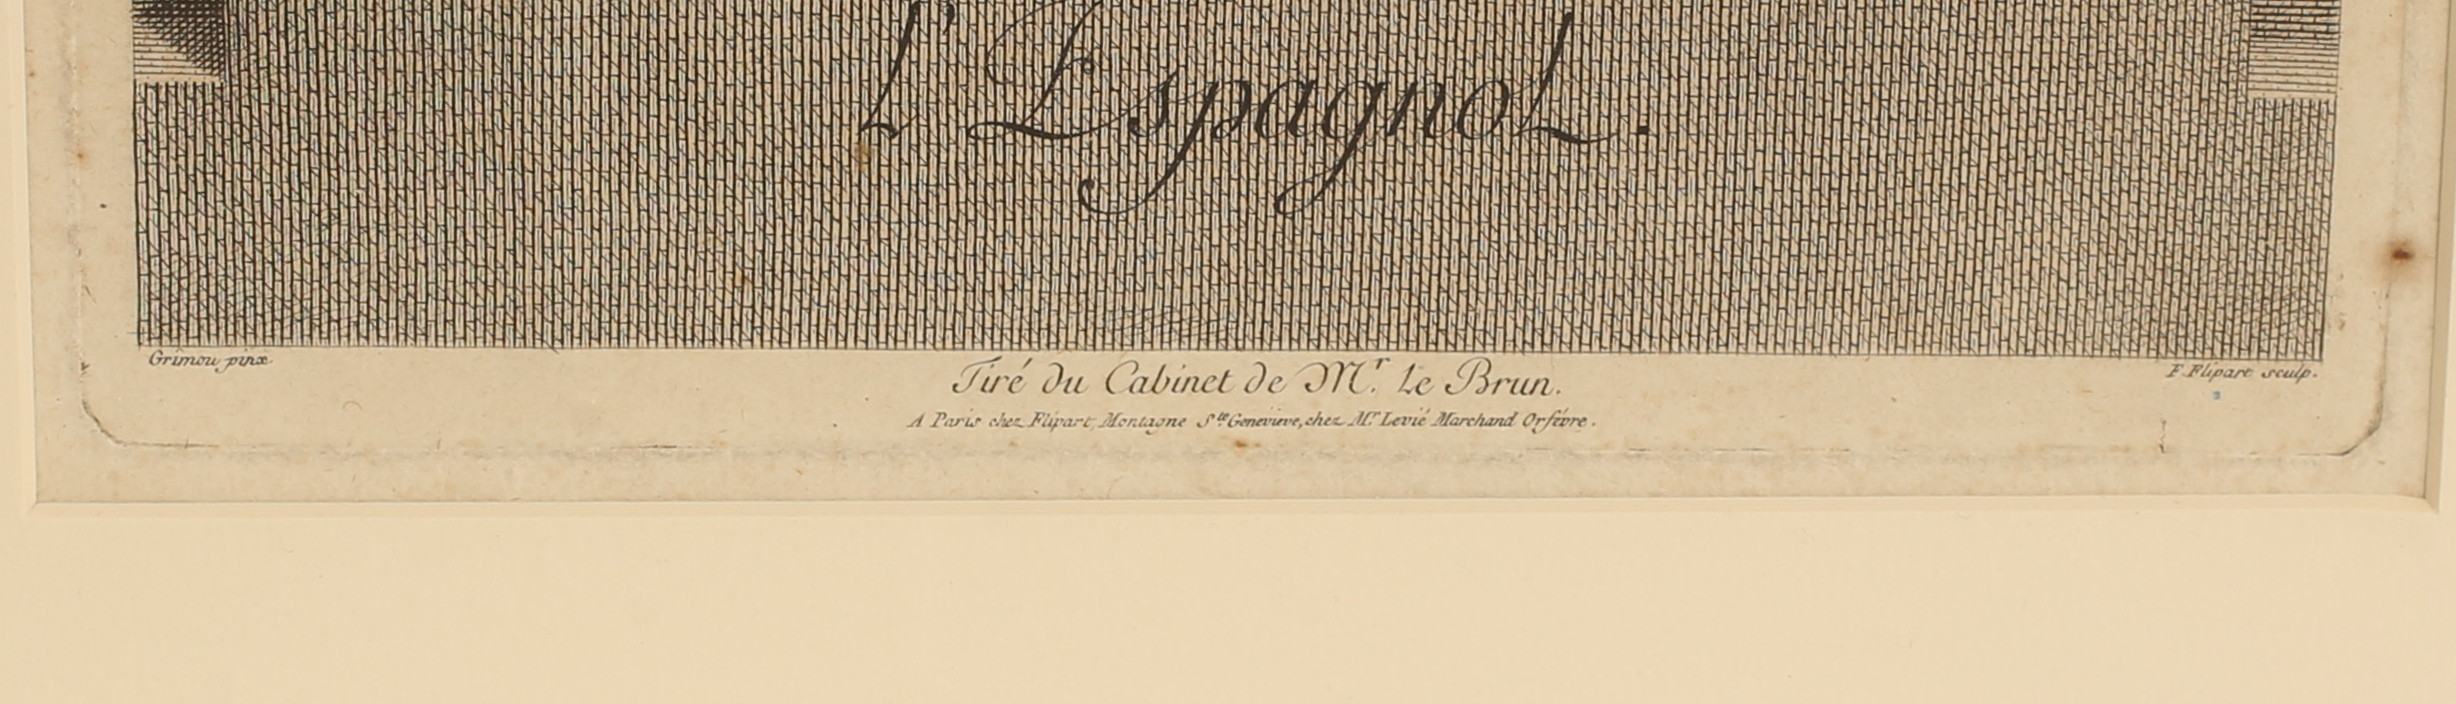 L'Espagnol.
Grimou pinx.
F. Flipart sculp.
Tiré du Cabinet de Mr. Le Brun.
A Paris chez Flipart, Montagne Ste Genevieve, chez Mr Levié Marchand Orfévre.